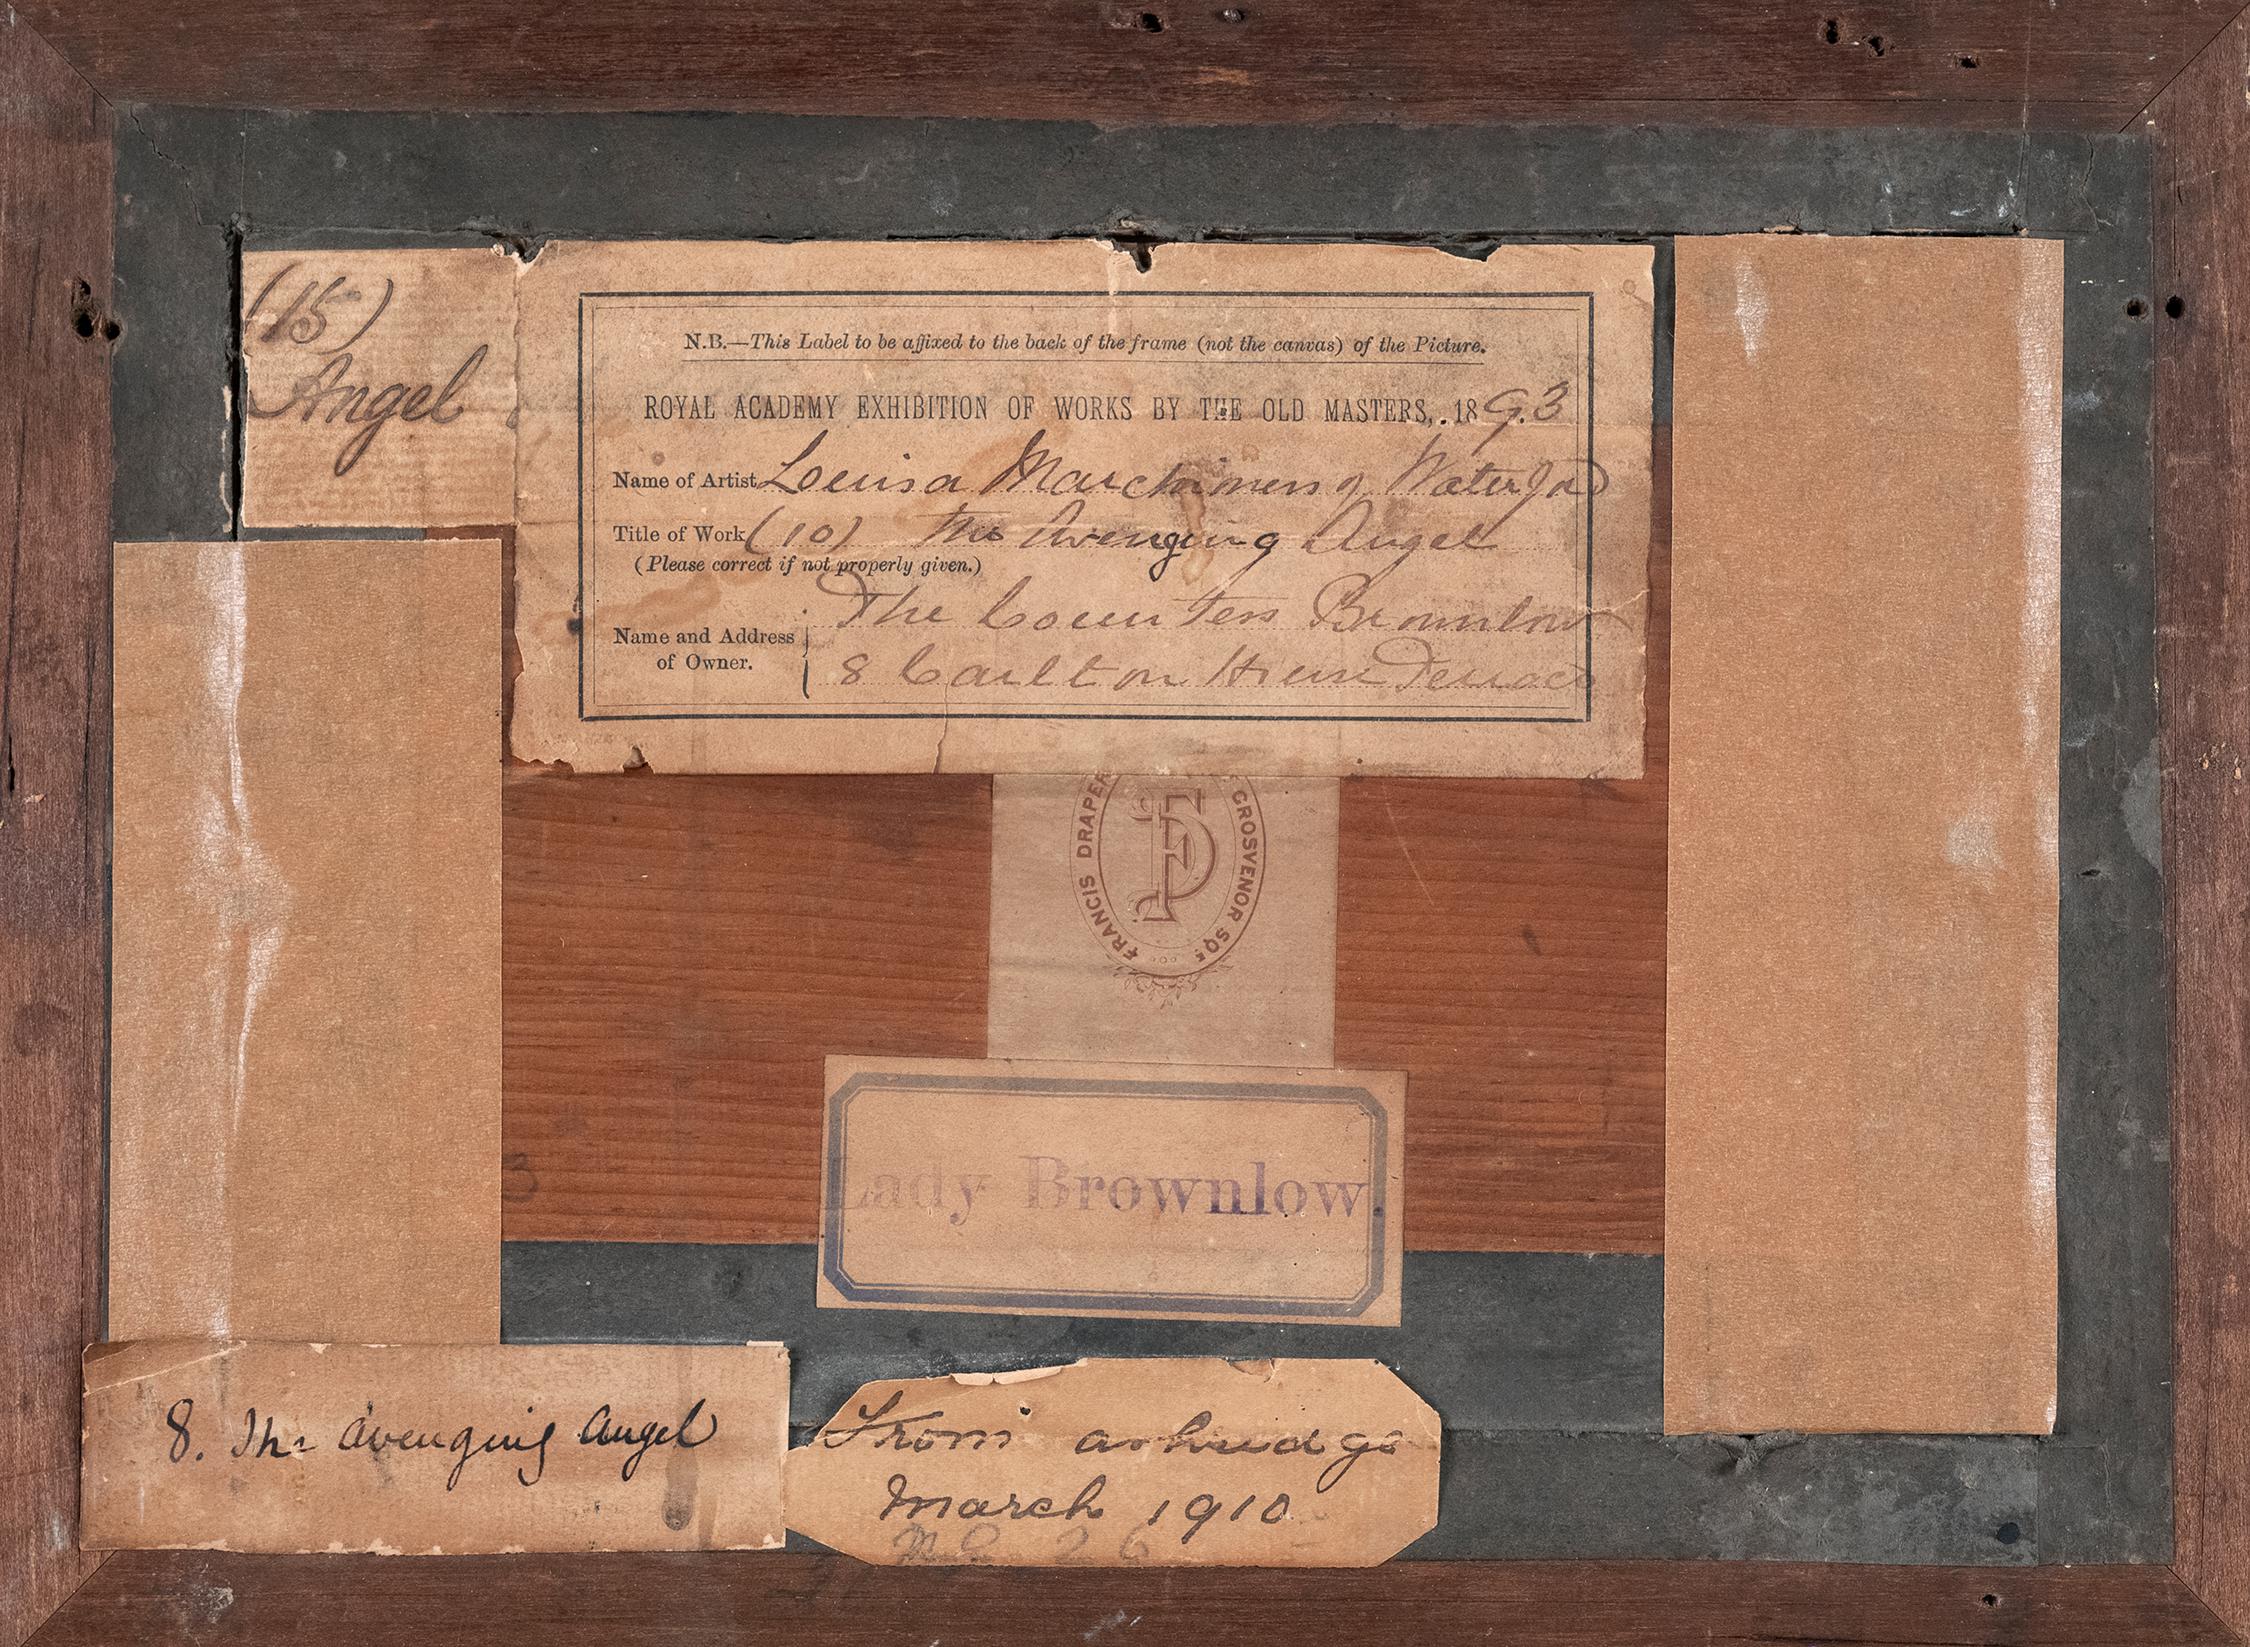 (15)
Angel
N.B.—This Label to be affixed to the back of the frame (not the canvas) of the Picture.
ROYAL ACADEMY EXHIBITION OF WORKS BY THE OLD MASTERS, 1893
Name of Artist Louisa Marchioness of Waterford
Title of Work (10) The Avenging Angel
(Please correct if not properly given.)
Name and Address of Owner. The Countess Brownlow
8 Carlton House Terrace
FRANCIS DRAPER GROSVENOR SQRE
FD
Lady Brownlow.
3
8. The avenging angel
From ashridge
March 1910
26